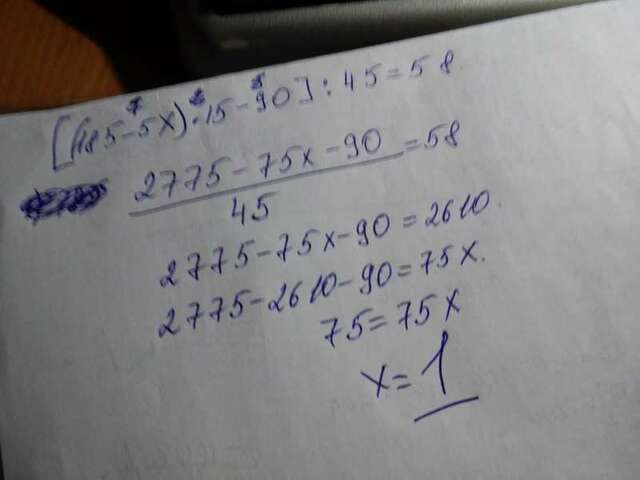 [(185-5x)·15-90]:45=58
2775-75x-90/45=58
2775-75x-90=2610
2775-2610-90=75x.
75=75x
x=1